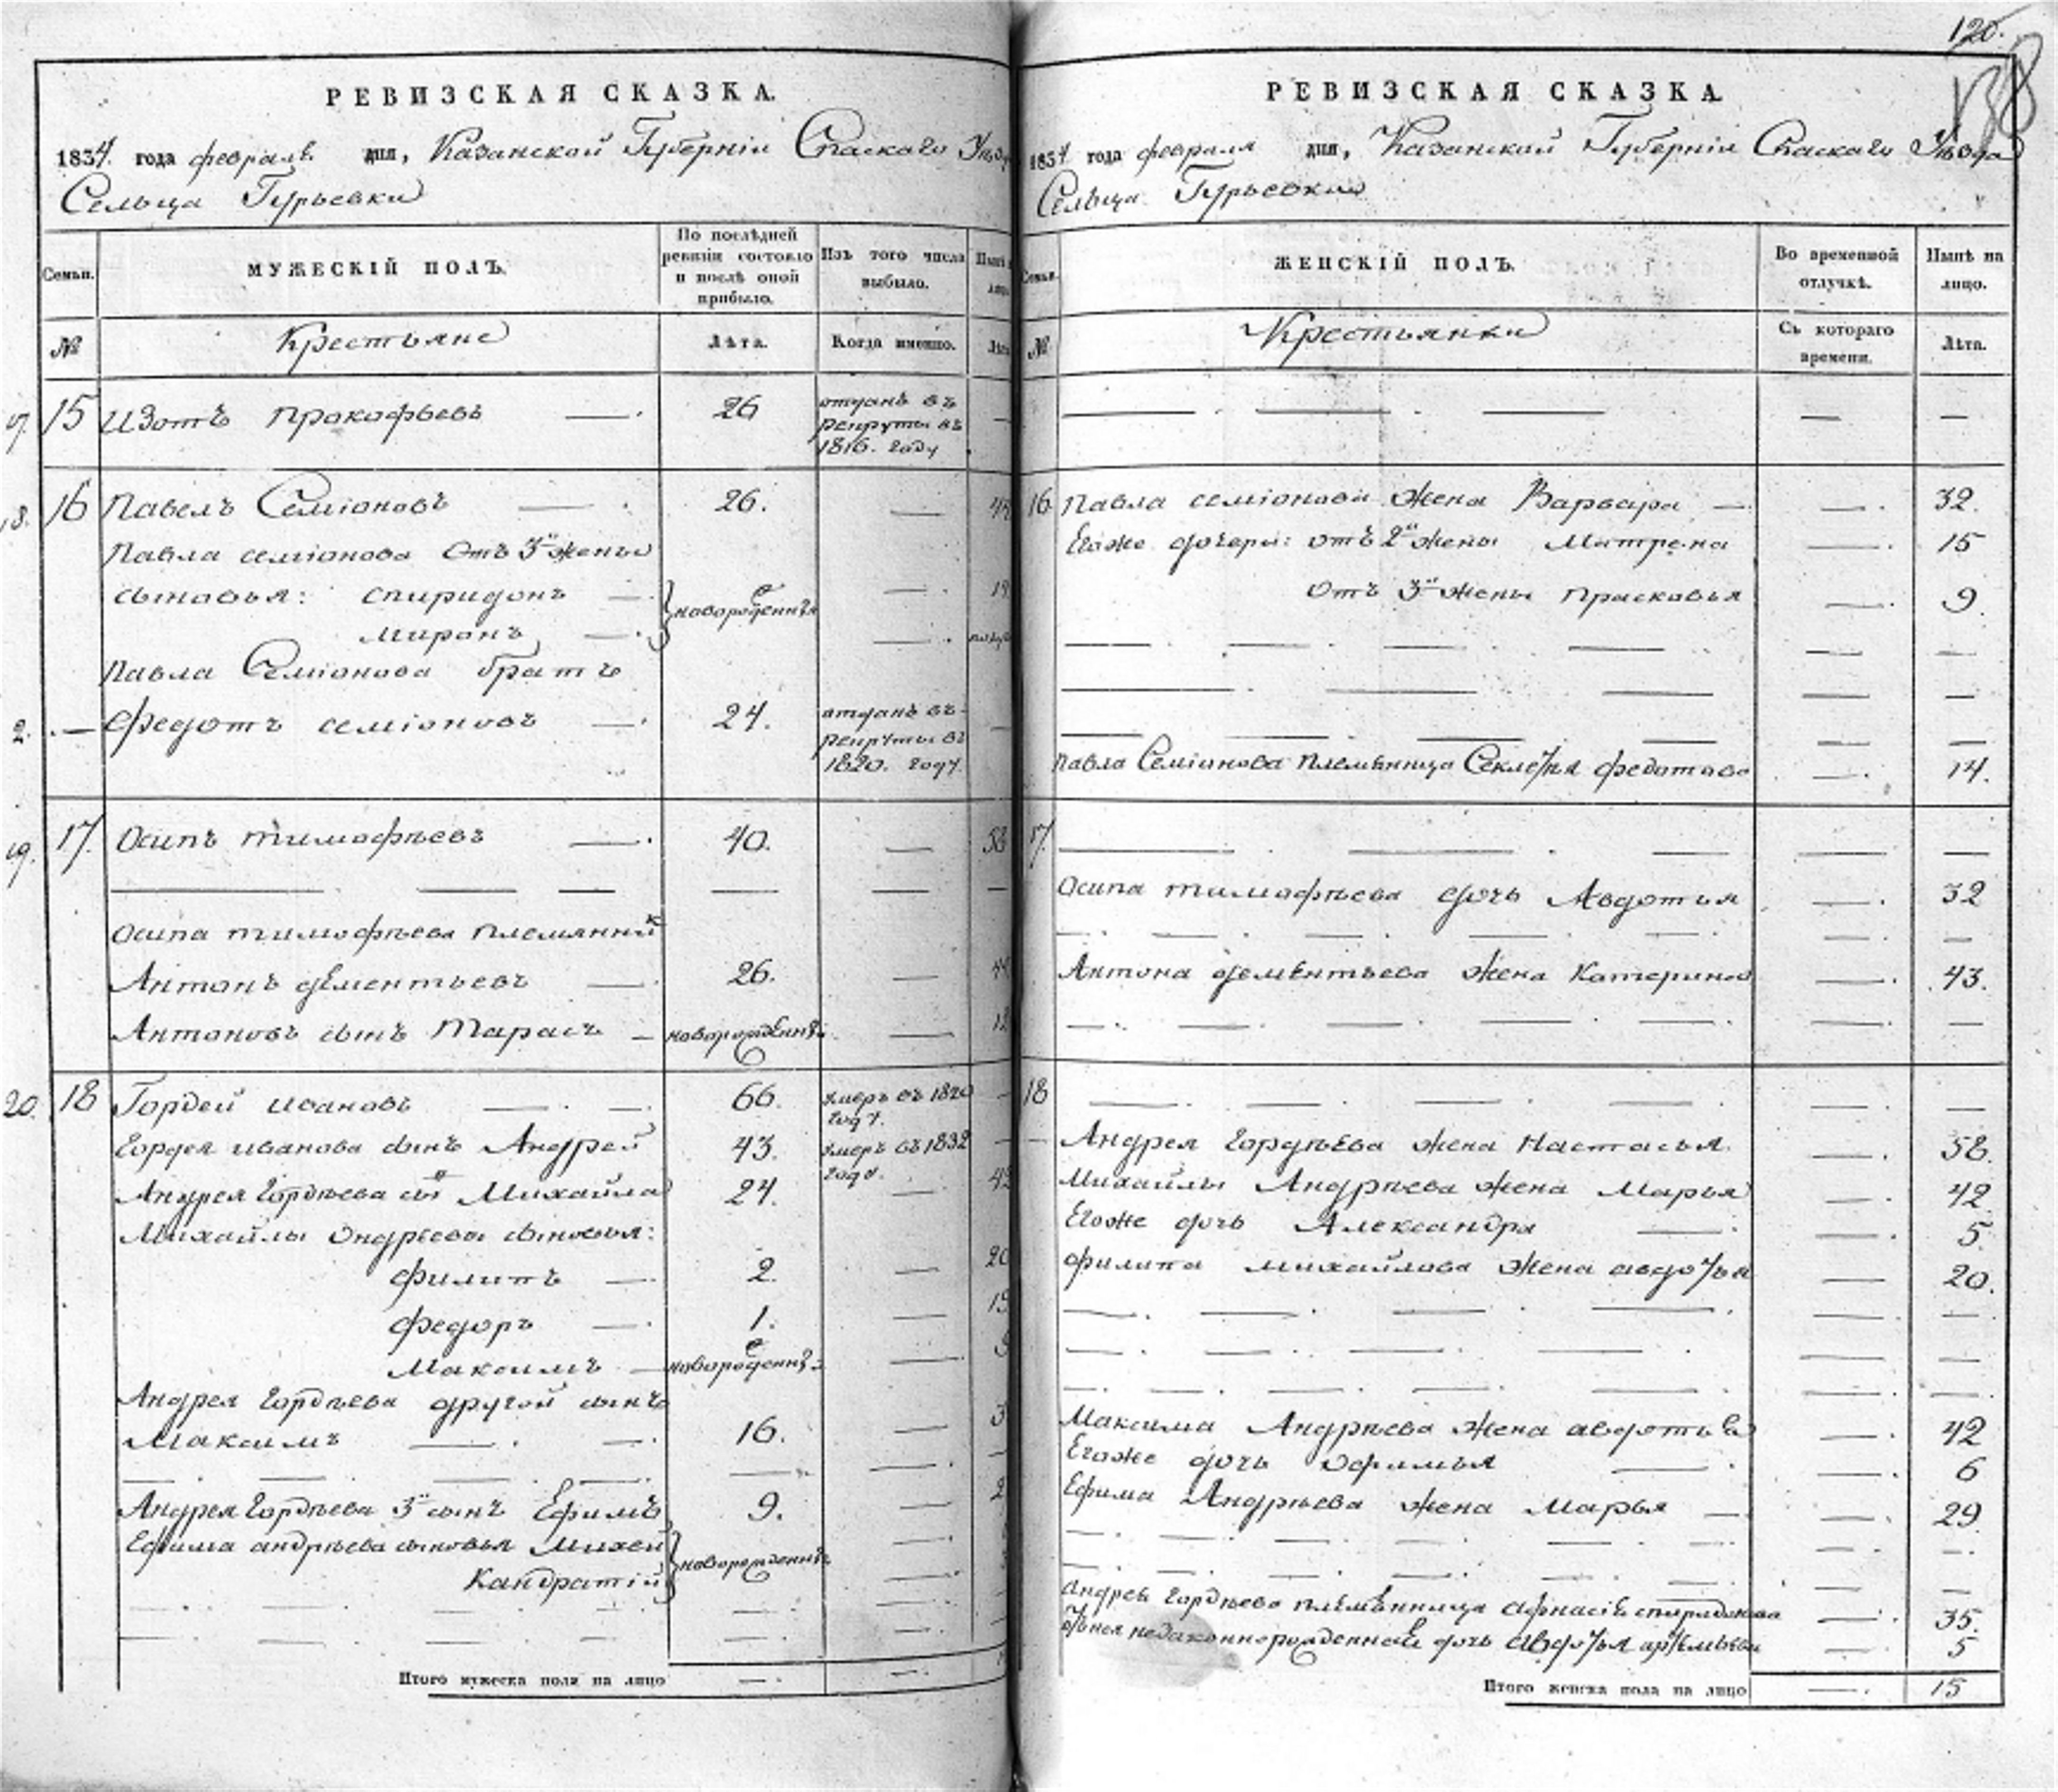 РЕВИЗСКАЯ СКАЗКА.
1834 года февраля дня, Казанской Губернiи Спаскаго
Сельца Гурьевки
Семьи.
МУЖЕСКІЙ ПОЛЪ.
По послѣдней ревизіи состояло и послѣ оной прибыло.
Изъ того числа выбыло.
№
Крестьяне
Лѣта.
Когда именно.
15 Изотъ Прокофьевъ — 26 отданъ въ рекруты въ 1816. году —
18. 16 Павелъ Семіоновъ — 26. —
Павла семіонова Отъ 3й жены
сыновья: спиридонъ — новорожденные —
Миронъ — —
Павла Семіонова братъ
2. — Федотъ семіоновъ — 24. отданъ въ рекруты въ 1820. году. —
19. 17. Осипъ тимофѣевъ — 40. —
— — — — — —
Осипа тимофѣева племянникъ
Антонъ дементьевъ — 26. —
Антоновъ сынъ Тарасъ — новорожденный —
20. 18 Гордей ивановъ — — 66. умеръ въ 1820 году. —
Гордея иванова сынъ Андрей 43. умеръ въ 1832 годѣ. —
Андрея Гордѣева сынъ Михайла 24. —
Михайлы Ондрѣева сыновья:
филипъ — 2. — 20
федоръ — 1. —
Максимъ — новорожденный —
Андрея Гордѣева другой сынъ
Максимъ — — 16. —
— — — — — —
Андрея Гордѣева 3й сынъ Ефимъ 9. —
Ефима андрѣева сыновья Михей новорожденные —
Кандратій —
— — — — — —
— — — — — —
Итого мужеска пола на лицо — —
120.
138
РЕВИЗСКАЯ СКАЗКА
1834 года февраля дня, Казанской Губерніи Спаскаго Уѣзда
Сельца Гурьевки
Семьи.
ЖЕНСКІЙ ПОЛЪ.
Во временной отлучкѣ.
Нынѣ на лицо.
№
Крестьянки
Съ котораго времени.
Лѣта.
— — — — —
16 Павла семіонова жена Варвара — — 32.
Егоже дочери: отъ 2й жены Матрена — 15
Отъ 3й жены Прасковья — 9.
— — — — — —
— — — — —
— — — — — —
Павла Семіонова племѣнница Секлетья федотова — 14.
17. — — — — —
Осипа тимофѣева дочь Авдотья — 32
— — — — — — —
Антона дементьева жена Катерина — 43.
— — — — — — —
18 — — — — — —
— Андрея Гордѣева жена Настасья. — 58.
Михайлы Андрѣева жена Марья — 42.
Егоже дочь Александра — — 5.
филипа михайлова жена авдотья — 20.
— — — — — —
— — — — — — —
— — — — — — —
Максима Андрѣева жена авдотья — 42
Егоже дочь Офимья — — 6
Ефима Андрѣева жена Марья — — 29.
— — — — — — —
— — — — — — —
Андрея Гордѣева племѣнница — 35.
незаконнорожденная дочь авдотья — 5
Итого женска пола на лицо — 15